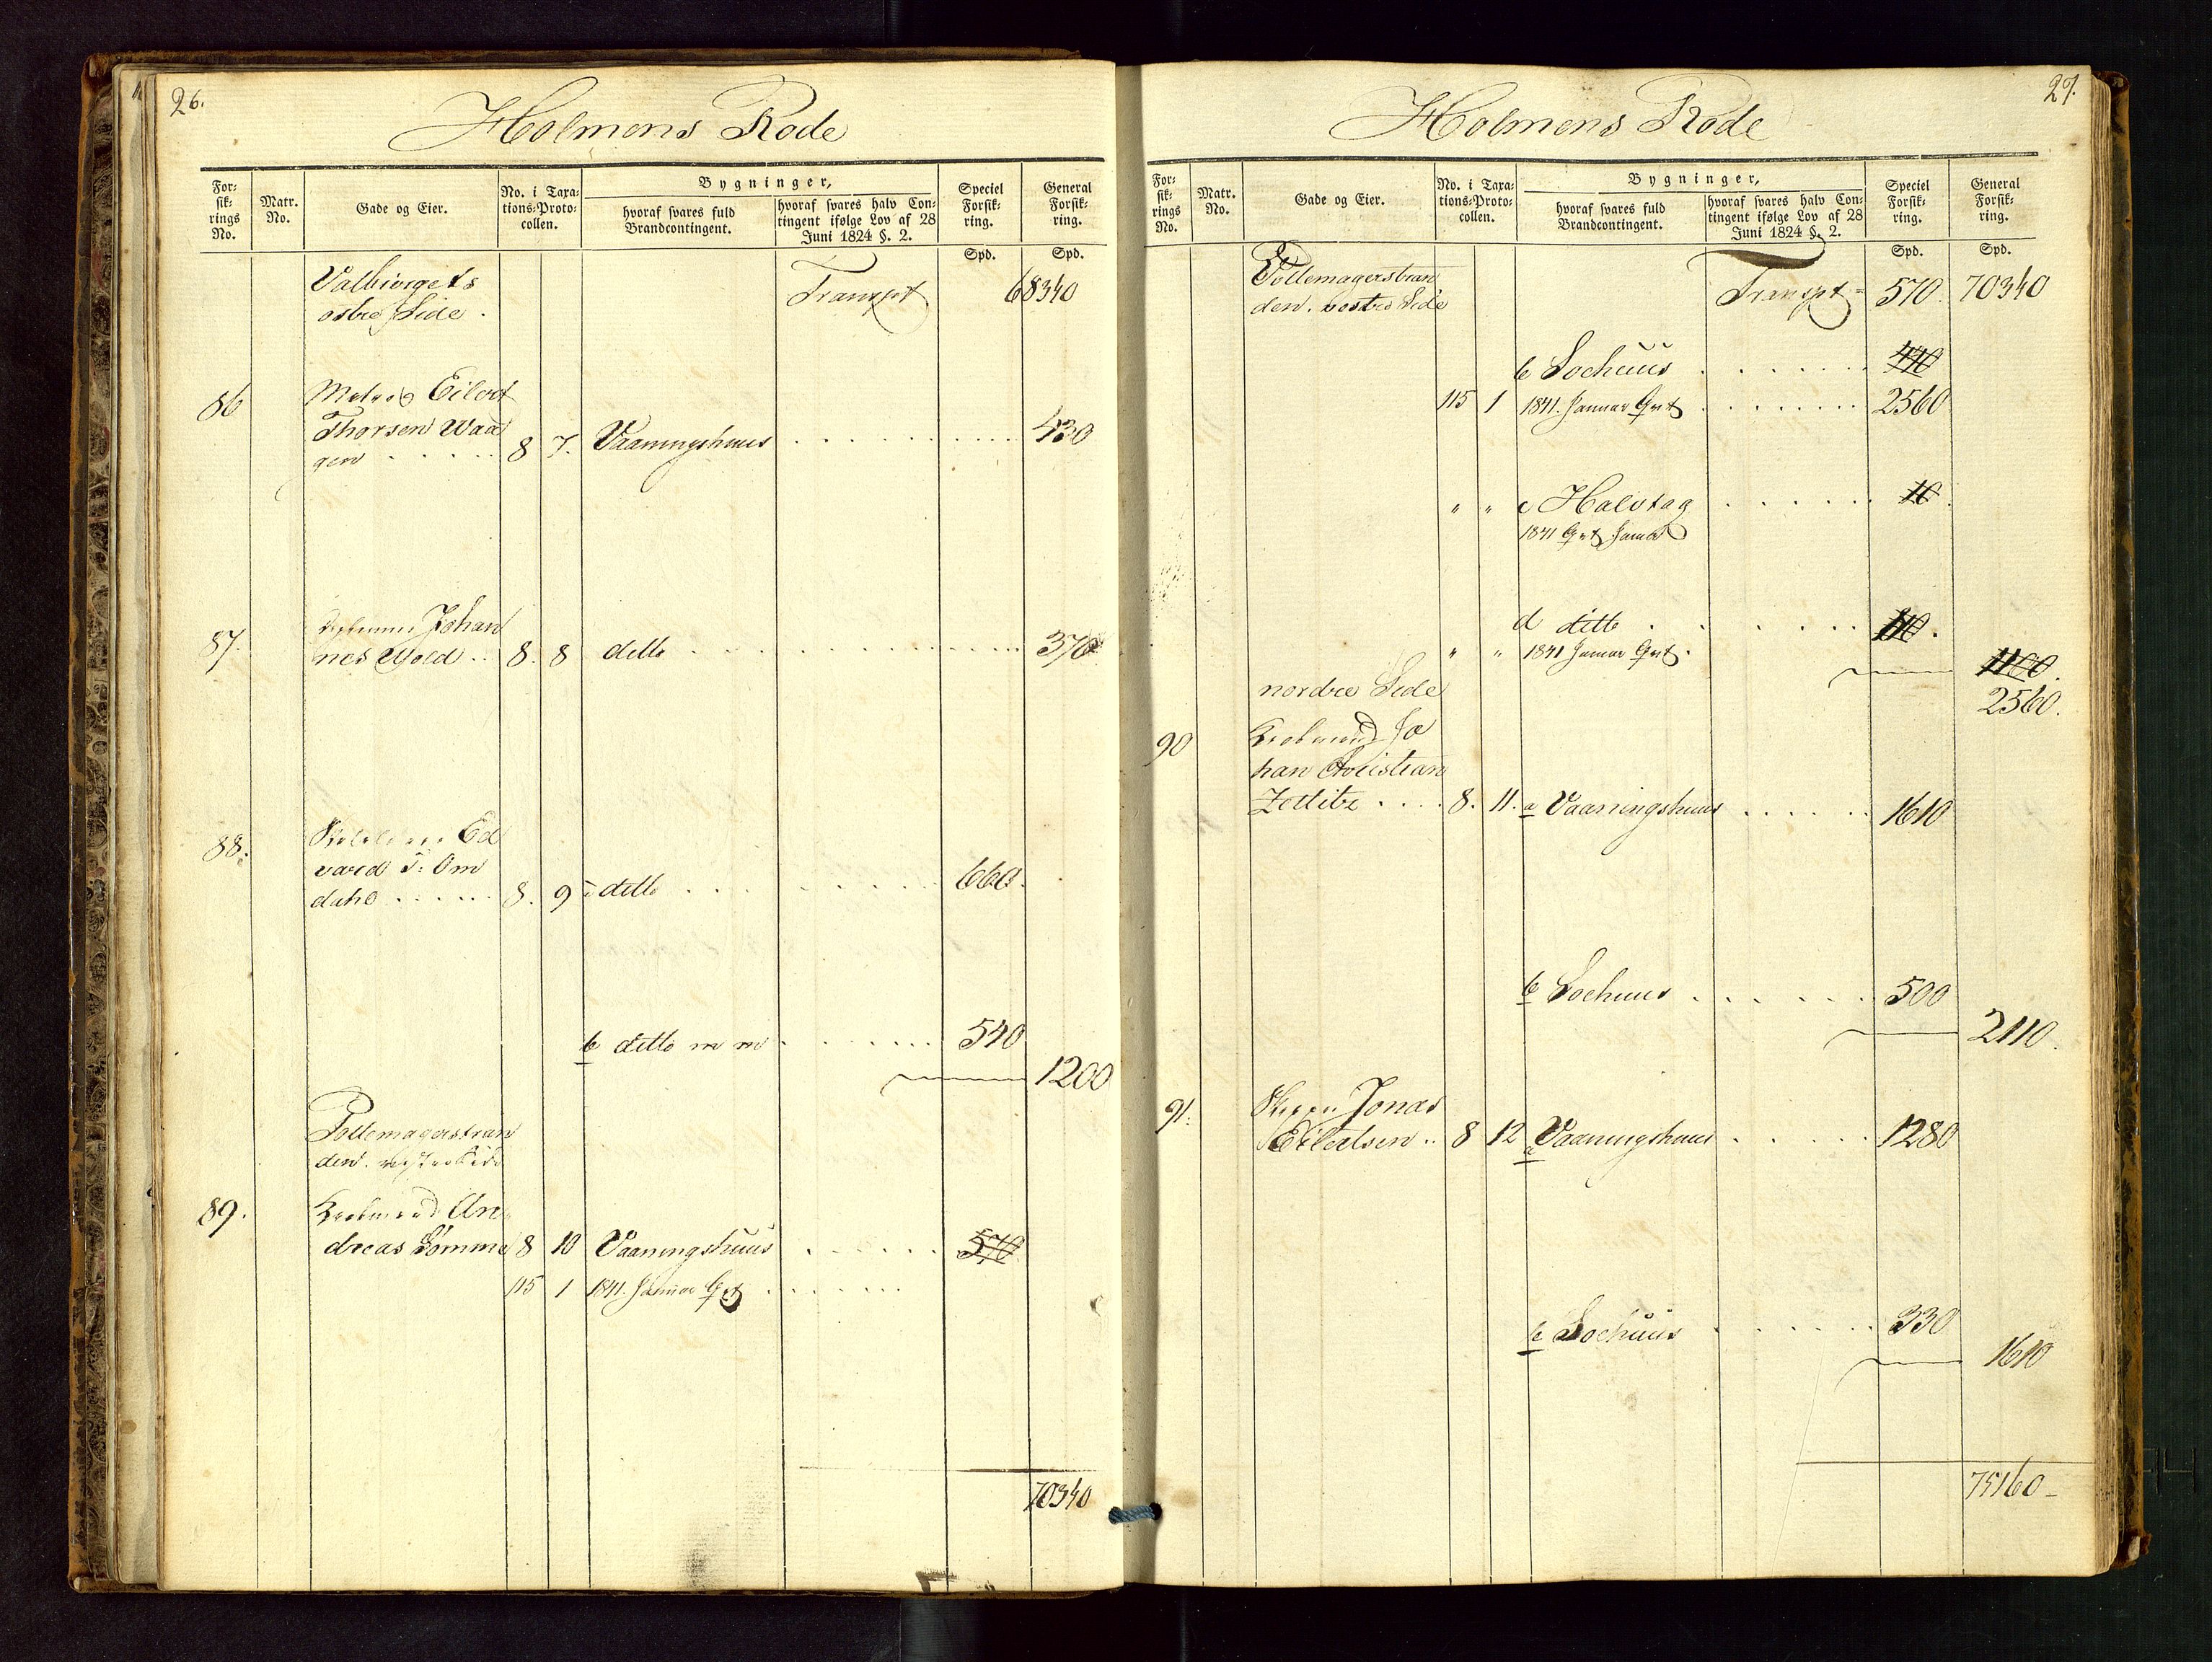 26.
Holmens Rode
For-
sik-
rings
No.
Matr.
No.
Gade og Eier.
No. i Taxa-
tions-Proto-
collen.
Bygninger,
hvoraf svares fuld
Brandcontingent.
hvoraf svares halv Con-
tingent ifølge Lov af 28
Juni 1824 §. 2.
Speciel
Forsik-
ring.
General
Forsik-
ring.
Spd.
Spd.
Valbirgets
østre Side.
Transpt
68340
86
Eilert
Thorsen Waa
gen
8
7.
Vaaningshuus
430
87.
Johan
nes Wold
8.
8
ditto
370
88.
Ed
vard T. Om
dahl
8.
9
ditto
660
b ditto m m
540
1200
Pottemagerstran
den. vestre Side
89.
Kiøbmand An
dreas Somme
8
10
Vaaningshuus
570
115
1
1841. Januar Qvt
70340
27.
Holmens Rode
For-
sik-
rings
No.
Matr.
No.
Gade og Eier.
No. i Taxa-
tions-Proto-
collen.
Bygninger,
hvoraf svares fuld
Brandcontingent.
hvoraf svares halv Con-
tingent ifølge Lov af 28
Juni 1824 §. 2.
Speciel
Forsik-
ring.
General
Forsik-
ring.
Spd.
Spd.
Pottemagerstran
den. vestre Side
Transpt
570
70340
b Søehuus
440
115
1
1841. Januar Qvt
2560
" " c Halvtag
10
1841 Qvt Januar
d ditto
" " 1841 Januar Qvt.
1100
2560.
nordre Side
90
Kiøbmand Jo
han Christian
Zetlitz
8.
11.
a Vaaningshuus
1610
b Søehuus
500
2110.
91.
Skipper Jonas
Eilertsen
8
12
a Vaaningshuus
1280
b Søehuus
330
1610
75160